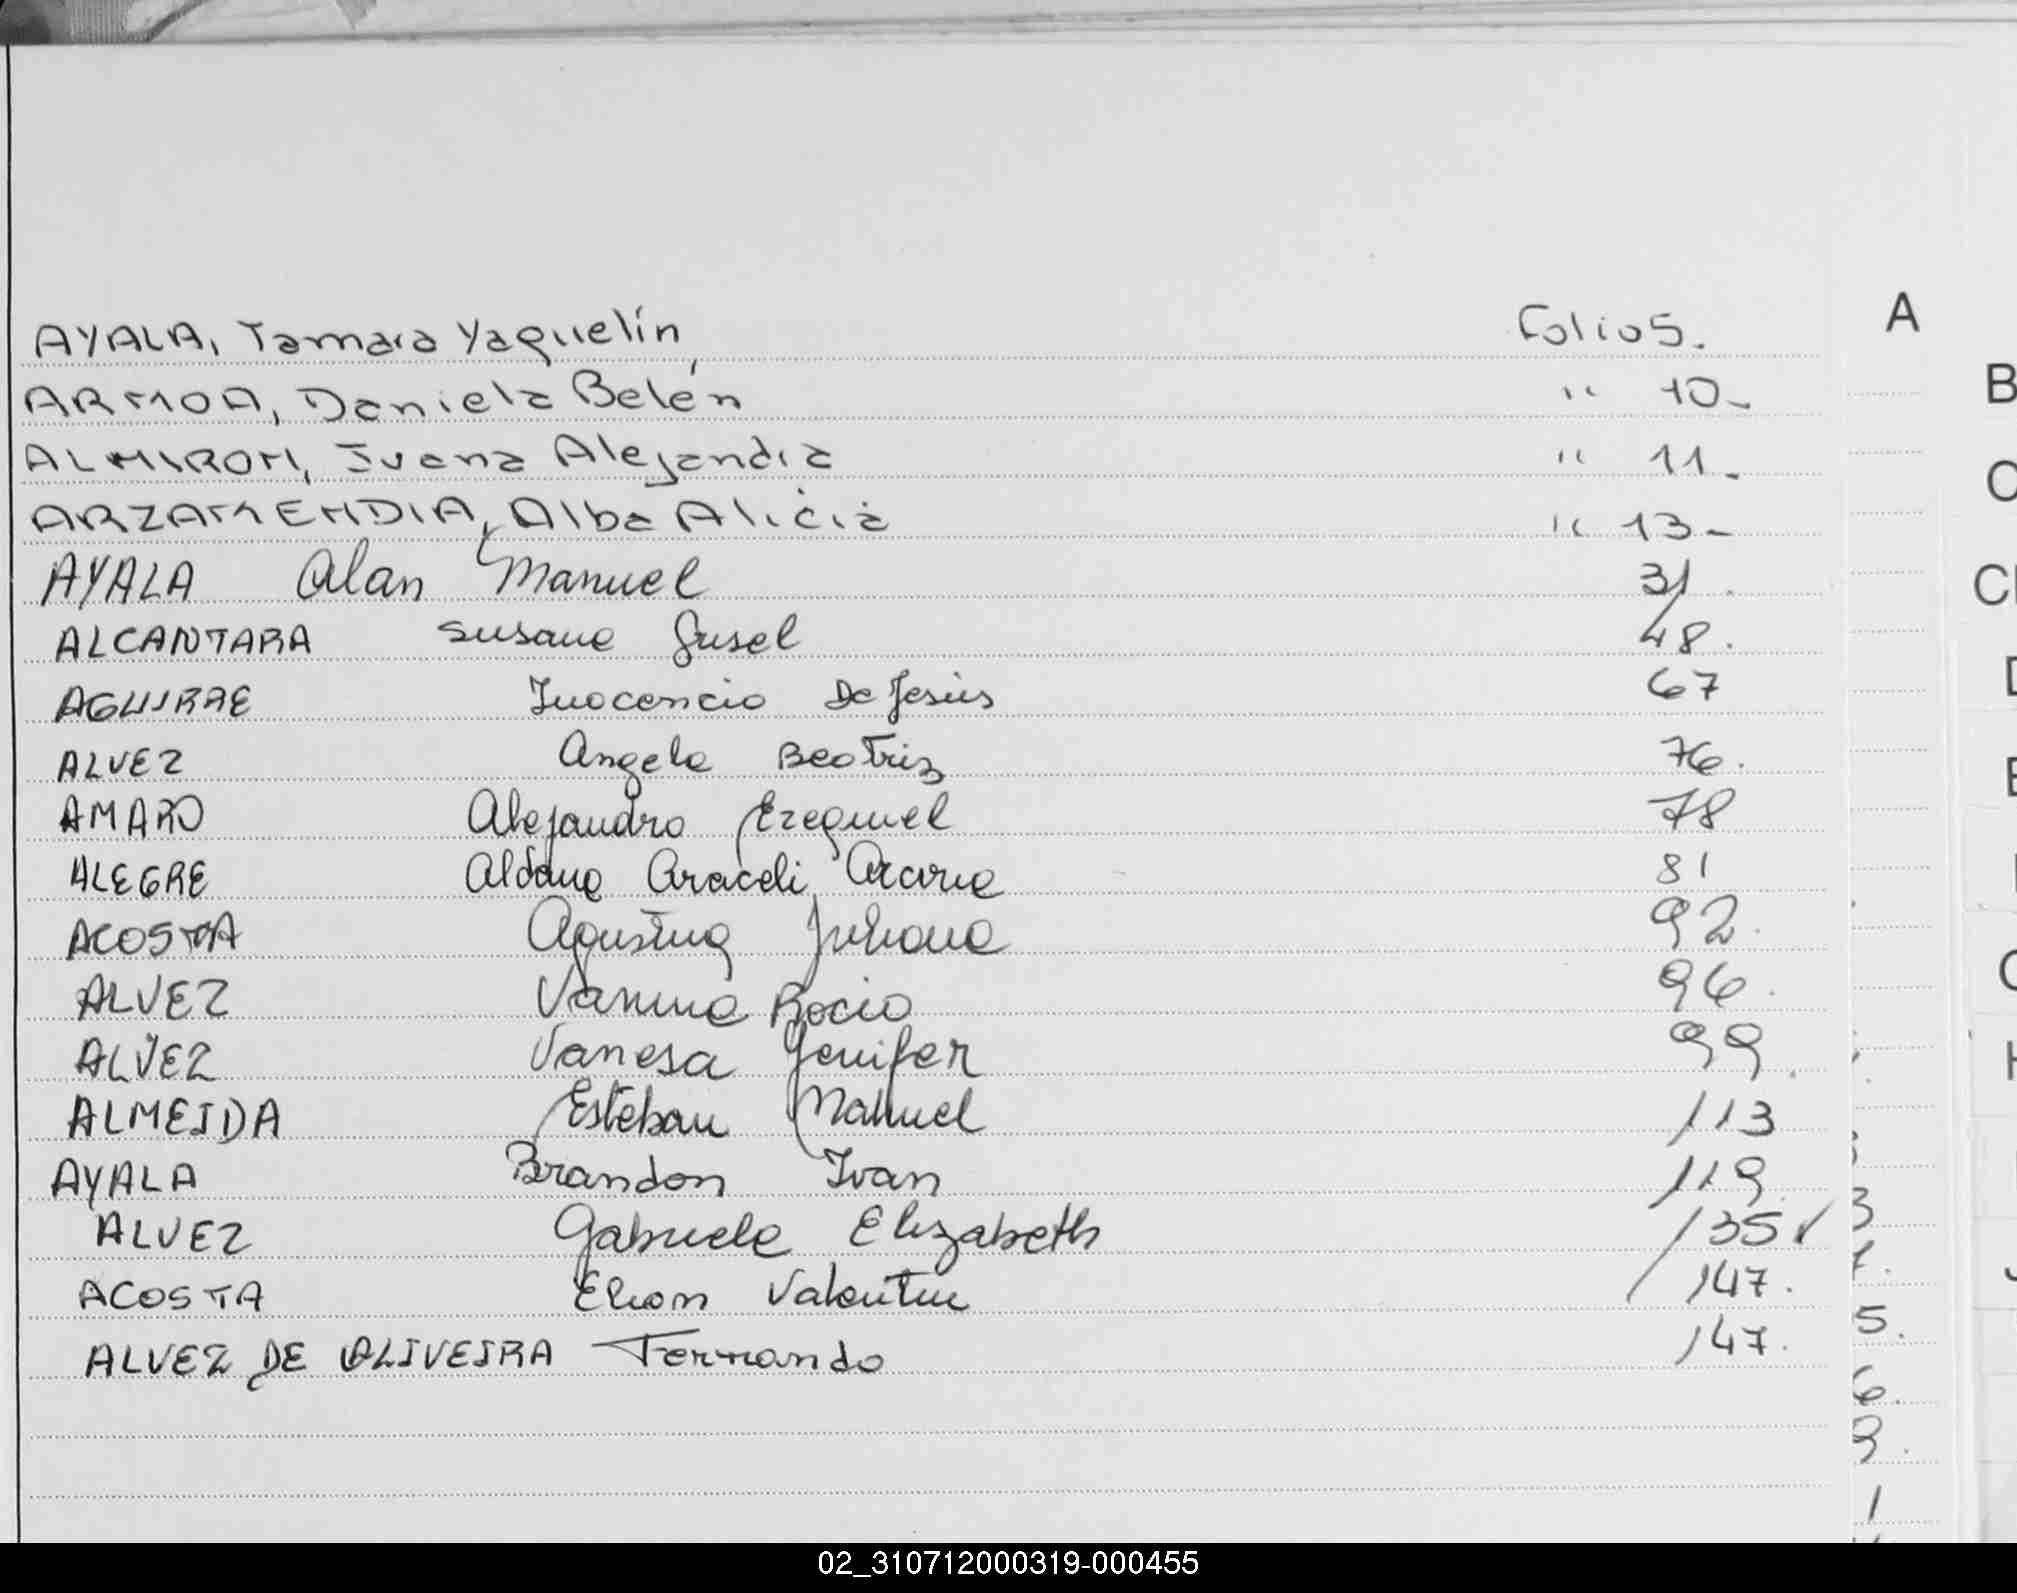 AYALA, Tamara Yaquelín Folio 5.
ARMOA, Daniela Belén " 10-
ALMIRON, Ivana Alejandra " 11-
ARZAMENDIA, Alba Alicia " 13-
AYALA Alan Manuel 31.
ALCANTARA Susana Gisel 48.
AGUIRRE Inocencio De Jesús 67
ALVEZ Angela Beatriz 76.
AMARO Alejandro Ezequiel 78
ALEGRE Aldana Araceli 81
ACOSTA Agustina Juliana 92.
ALVEZ Vanina Rocio 96.
ALVEZ Vanesa Jenifer 99.
ALMEIDA Esteban Manuel 113
AYALA Brandon Ivan 119.
ALVEZ Gabriela Elizabeth 135 ✓
ACOSTA Elian Valentin 147.
ALVEZ DE OLIVEIRA Fernando 147.
A
B
C
D
H
3
5.
6.
3.
1
02_310712000319-000455